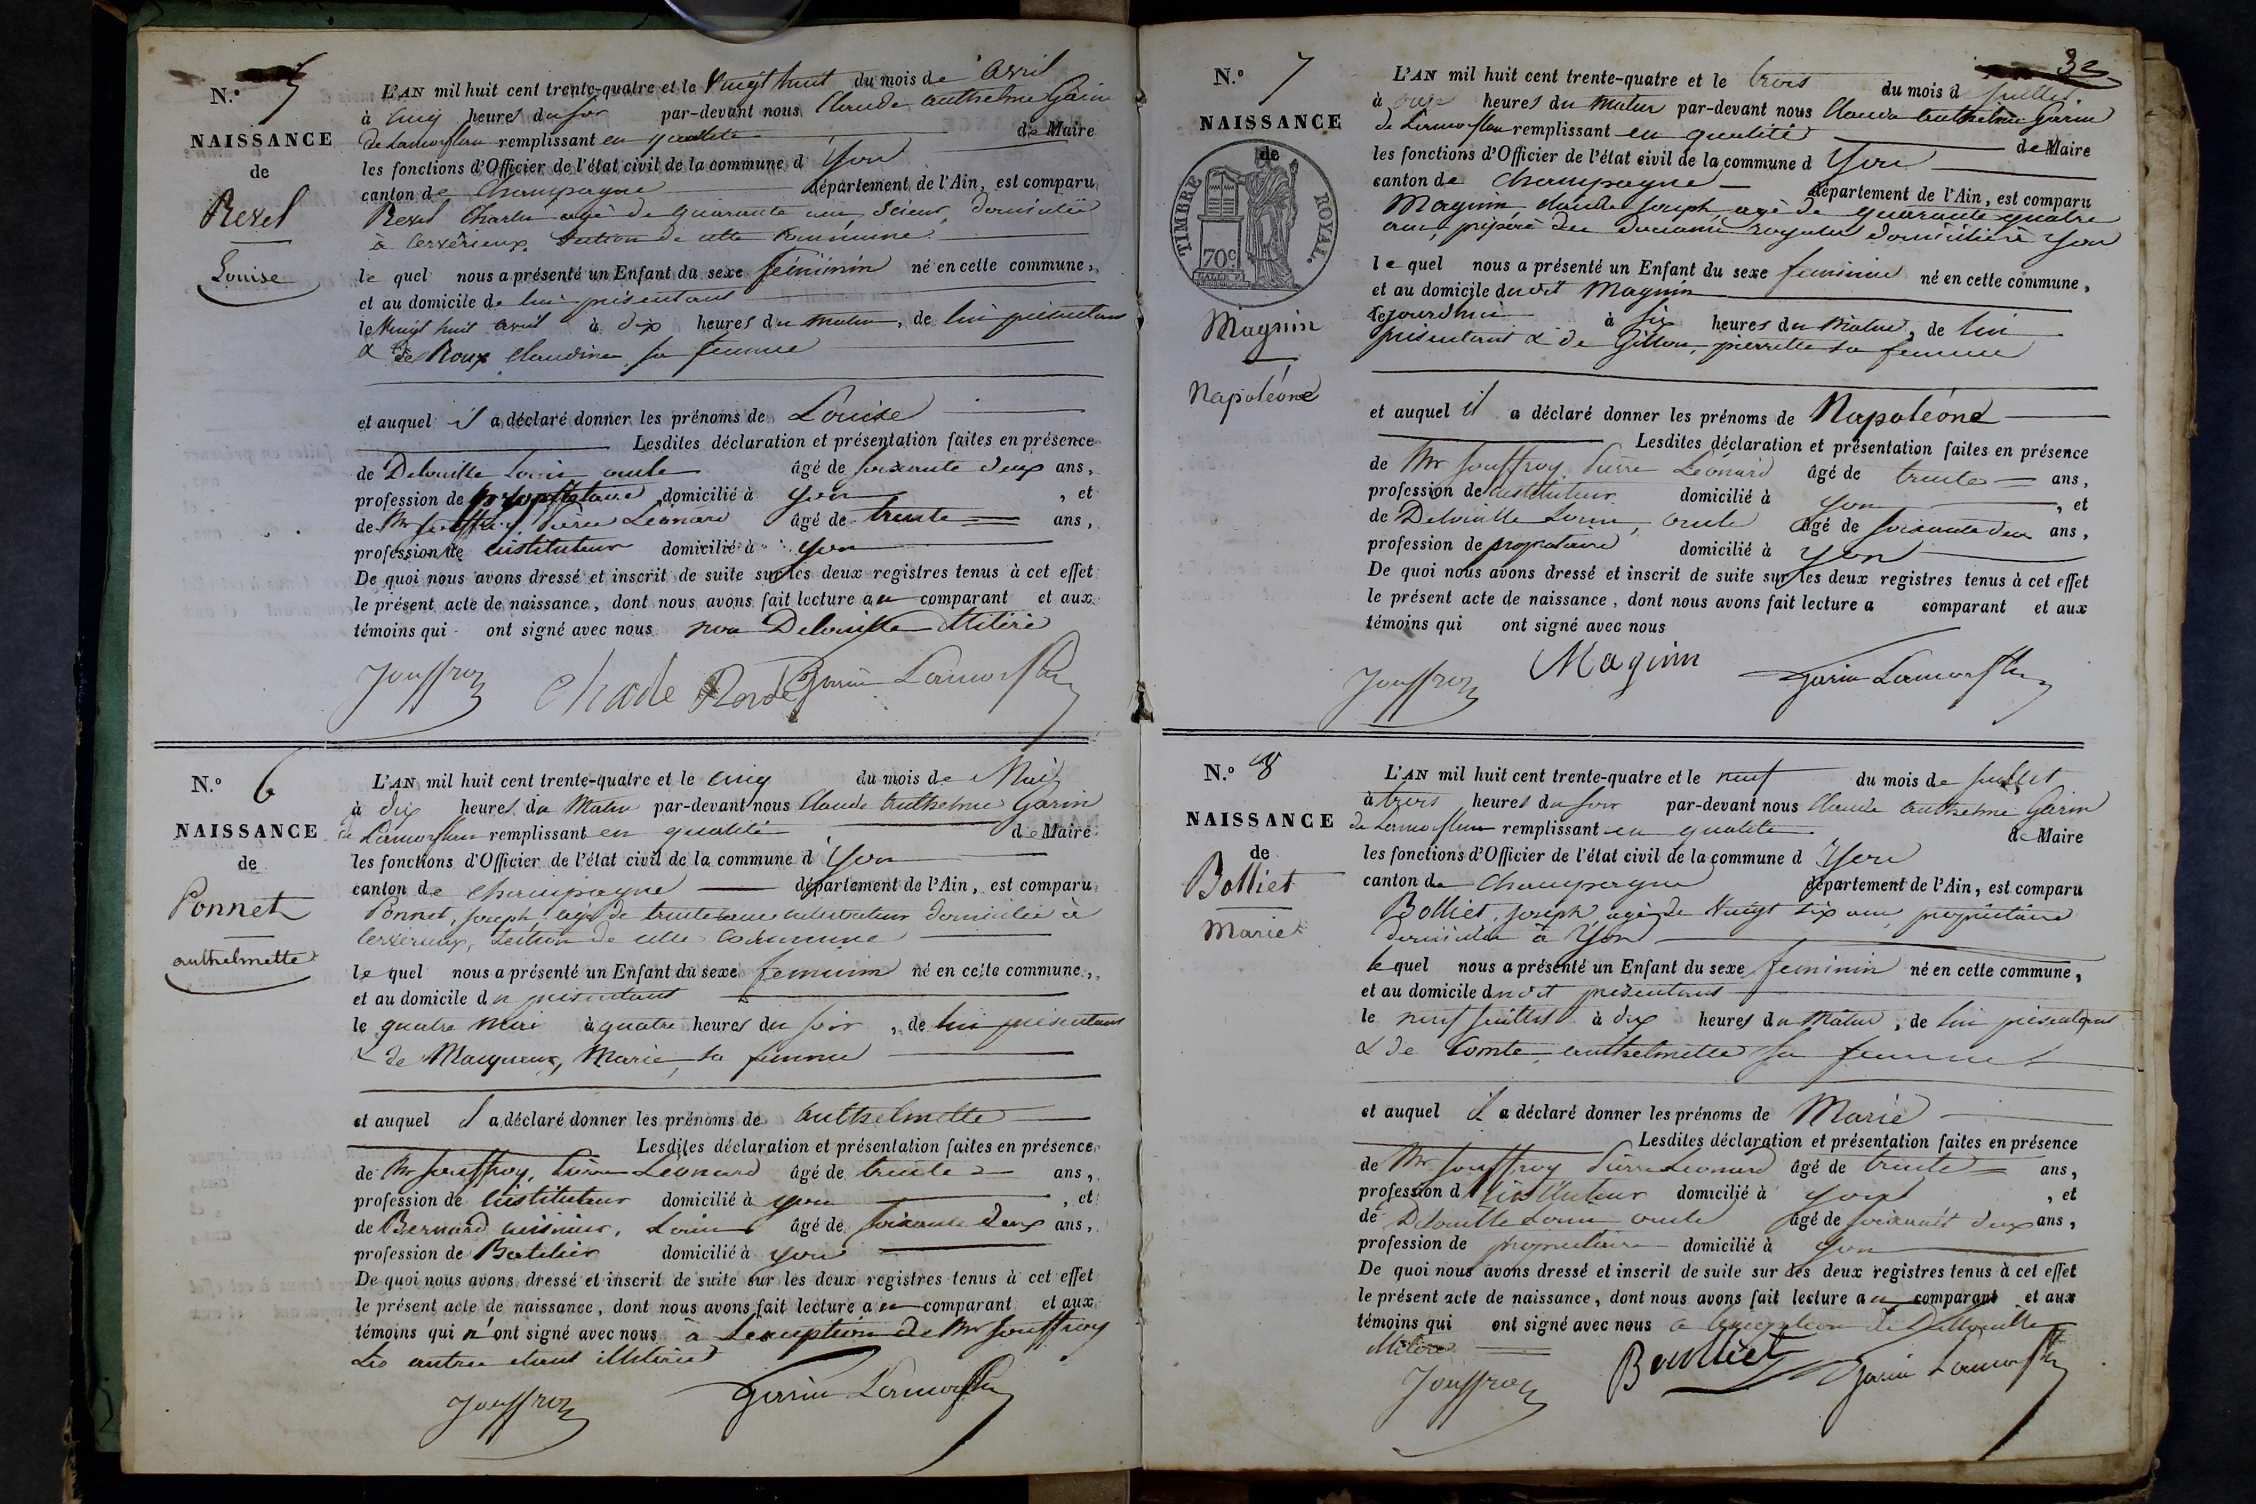 N.º 5
NAISSANCE
de
Rexel
Louise
L'AN mil huit cent trente-quatre et le Vingt huit du mois de avril
à cinq heures du soir par-devant nous Claude Anthelme Garin
de Lamorflan remplissant en qualité de Maire
les fonctions d'Officier de l'état civil de la commune d'Yon
canton de Champagne département de l'Ain, est comparu
Rexel Charles agé de quarante ans, Scieur, domicilié
à Cerverieux, Section de cette Commune
le quel nous a présenté un Enfant du sexe féminin né en cette commune,
et au domicile de lui présentant
le Vingt huit avril à dix heures du matin, de lui présentant
& de Roux Claudine sa femme
et auquel il a déclaré donner les prénoms de Louise
Lesdites déclaration et présentation faites en présence
de Delouille Louis âgé de soixante deux ans,
profession de propriétaire domicilié à yon, et
de Mr Jouffroy Pierre Léonard âgé de trente ans,
profession de instituteur domicilié à yon
De quoi nous avons dressé et inscrit de suite sur les deux registres tenus à cet effet
le présent acte de naissance, dont nous avons fait lecture au comparant et aux
témoins qui ont signé avec nous non Delouille illitéré
Jouffroy Garin Lamorflan
N.º 6
NAISSANCE
de
Ponnet
anthelmette
L'AN mil huit cent trente-quatre et le cinq du mois de Mai
à dix heures du Matin par-devant nous Claude Anthelme Garin
de Lamorflan remplissant en qualité de Maire
les fonctions d'Officier de l'état civil de la commune d'Yon
canton de Champagne département de l'Ain, est comparu
Ponnet, Joseph agé de trente ans cultivateur domicilié à
Cerverieux, Section de cette Commune
le quel nous a présenté un Enfant du sexe feminin né en cette commune,
et au domicile du présentant
le quatre Mai à quatre heures du soir, de lui présentant
& de Maigueux, Marie, sa femme
et auquel il a déclaré donner les prénoms de anthelmette
Lesdites déclaration et présentation faites en présence
de Mr Jouffroy, Pierre Leonard âgé de trente ans,
profession de Instituteur domicilié à yon, et
de Bernard Louis âgé de soixante deux ans,
profession de Batelier domicilié à yon
De quoi nous avons dressé et inscrit de suite sur les deux registres tenus à cet effet
le présent acte de naissance, dont nous avons fait lecture au comparant et aux
témoins qui n'ont signé avec nous à l'exception de Mr Jouffroy
Les autres étant illitérés
Jouffroy Garin Lamorflan
32
N.º 7
NAISSANCE
de
TIMBRE ROYAL
70c
Magnin
Napoléone
L'AN mil huit cent trente-quatre et le trois du mois de Juillet
à onze heures du Matin par-devant nous Claude Anthelme Garin
de Lamorflan remplissant en qualité de Maire
les fonctions d'Officier de l'état civil de la commune d Yon
canton de Champagne département de l'Ain, est comparu
Magnin Claude Joseph agé de quarante quatre
ans, préposé des douanes royales domicilié à Yon
le quel nous a présenté un Enfant du sexe feminin né en cette commune,
et au domicile dudit Magnin
cejourdhui à six heures du Matin, de lui
présentant & de Gillon, pierrette sa femme
et auquel il a déclaré donner les prénoms de Napoléone
Lesdites déclaration et présentation faites en présence
de Mr Jouffroy Pierre Léonard âgé de trente ans,
profession de instituteur domicilié à yon, et
de Delouille Louis, âgé de soixante deux ans,
profession de propriétaire domicilié à Yon
De quoi nous avons dressé et inscrit de suite sur les deux registres tenus à cet effet
le présent acte de naissance, dont nous avons fait lecture a comparant et aux
témoins qui ont signé avec nous
Jouffroy Magnin Garin Lamorflan
N.º 8
NAISSANCE
de
Bolliet
Marie
L'AN mil huit cent trente-quatre et le neuf du mois de Juillet
à trois heures du soir par-devant nous Claude Anthelme Garin
de Lamorflan remplissant en qualité de Maire
les fonctions d'Officier de l'état civil de la commune d Yon
canton de Champagne département de l'Ain, est comparu
Bolliet, Joseph, agé de Vingt six ans, propriétaire
domicilié à Yon
le quel nous a présenté un Enfant du sexe feminin né en cette commune,
et au domicile dudit présentant
le neuf Juillet à dix heures du Matin, de lui présentant
& de Comte, anthelmette sa femme
et auquel il a déclaré donner les prénoms de Marie
Lesdites déclaration et présentation faites en présence
de Mr Jouffroy Pierre Leonard âgé de trente ans,
profession d'instituteur domicilié à yon, et
de Delouille Louis âgé de soixante deux ans,
profession de propriétaire domicilié à yon
De quoi nous avons dressé et inscrit de suite sur les deux registres tenus à cet effet
le présent acte de naissance, dont nous avons fait lecture au comparant et aux
témoins qui ont signé avec nous à l'exception de Delouille
illitéré
Jouffroy Boulliet Garin Lamorflan